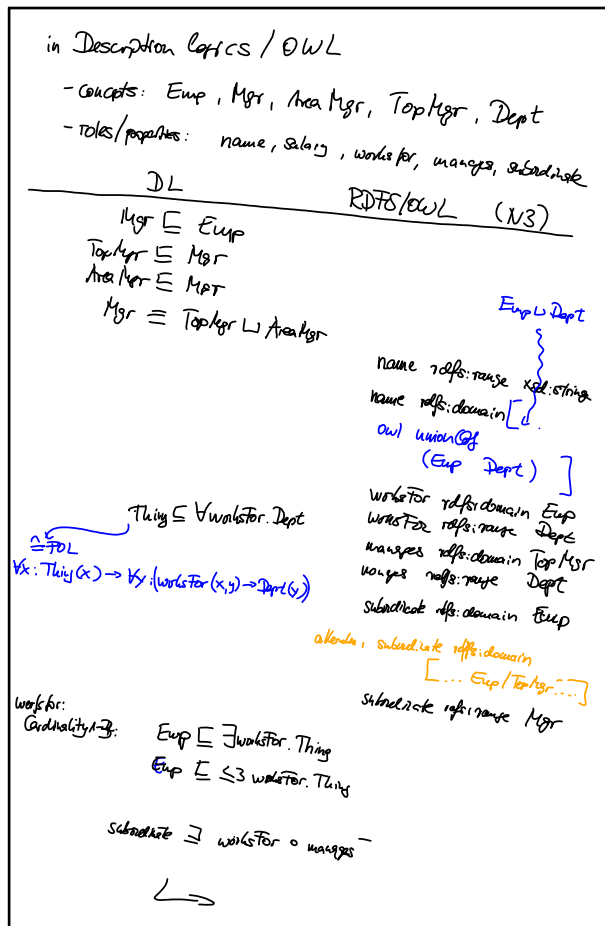 in Description Logics / OWL
- concepts: Emp, Mgr, AreaMgr, TopMgr, Dept
- roles/properties: name, salary, worksfor, manages, subordinate
DL RDFS/OWL (N3)
Mgr ⊑ Emp
TopMgr ⊑ Mgr
AreaMgr ⊑ Mgr
Mgr ≡ TopMgr ⊔ AreaMgr
Emp ⊔ Dept
name rdfs:range xsd:string
name rdfs:domain [ .
owl unionOf
(Emp Dept) ]
worksFor rdfs:domain Emp
Thing ⊑ ∀worksFor.Dept
worksFor rdfs:range Dept
≙ FOL
manages rdfs:domain TopMgr
∀x: Thing(x) → ∀y:(worksFor(x,y) → Dept(y))
manges rdfs:range Dept
subordicate rdfs:domain Emp
subordicate rdfs:domain
[... Emp/TopMgr....]
subordinate rdfs:range Mgr
worksfor:
Cardinality
Emp ⊑ ∃worksFor.Thing
Emp ⊑ ≤3 worksFor.Thing
subordinate ⊒ worksFor ∘ manages⁻